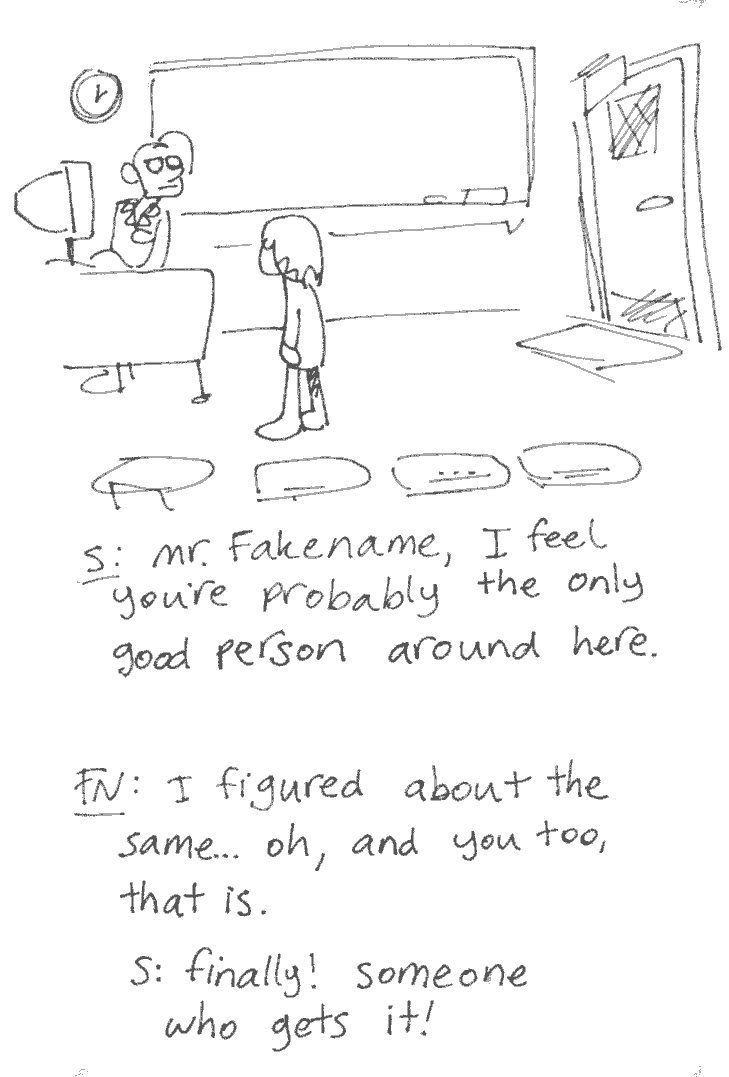 S: mr. Fakename, I feel
you're probably the only
good person around here.
FN: I figured about the
same... oh, and you too,
that is.
S: finally! someone
who gets it!